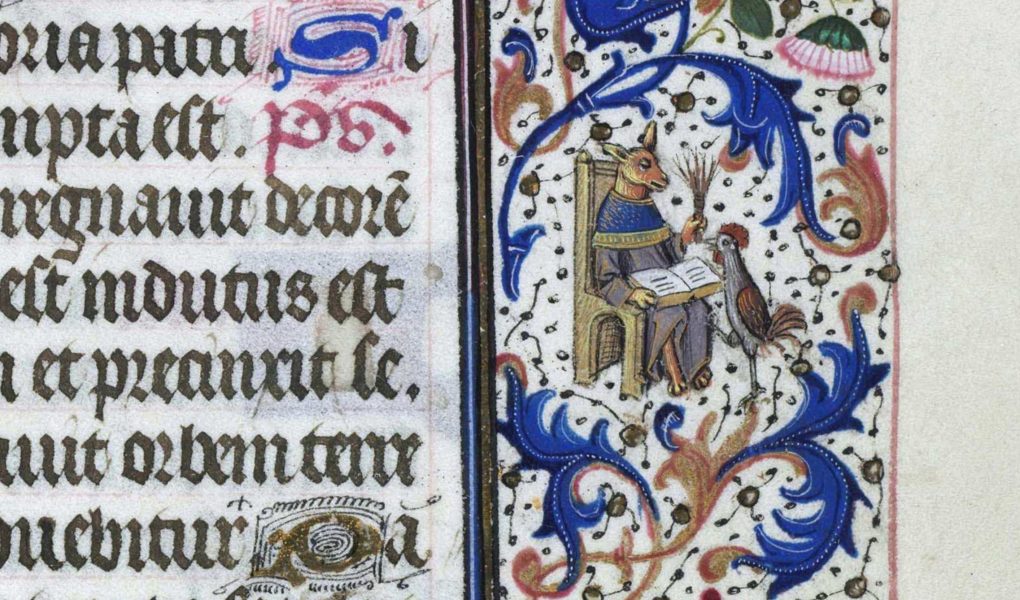 oria patri Si
mpta est. ps.
regnauit decorē
est indutus est
n et precinxit se.
auit orbem terre
ouebitur Pa